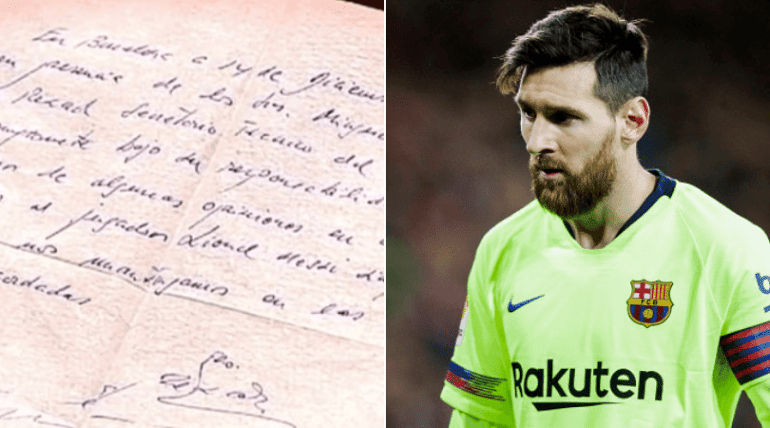 En Barcelona a 14 de Diciem
presencia de los Srs. Mingue
Rexad Secretario Técnico del
bajo su responsabilidad
de algunas opiniones en
al jugador Lionel Messi
nos mantengamos en las
cordadas
FCB
Rakuten